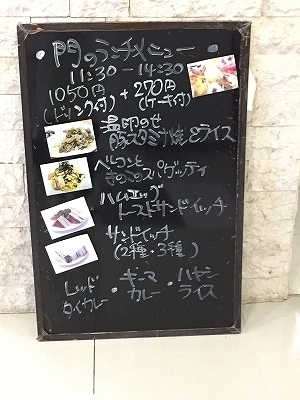 門のランチメニュー
11:30 - 14:30
1050円 + 270円
(ドリンク付) (ケーキ付)
温卵のせ
豚スタミナ焼とライス
ベーコンと
きのこのスパゲッティ
ハムエッグ
トーストサンドイッチ
サンドイッチ
(2種・3種)
レッド ・キーマ ・ハヤシ
タイカレー カレー ライス